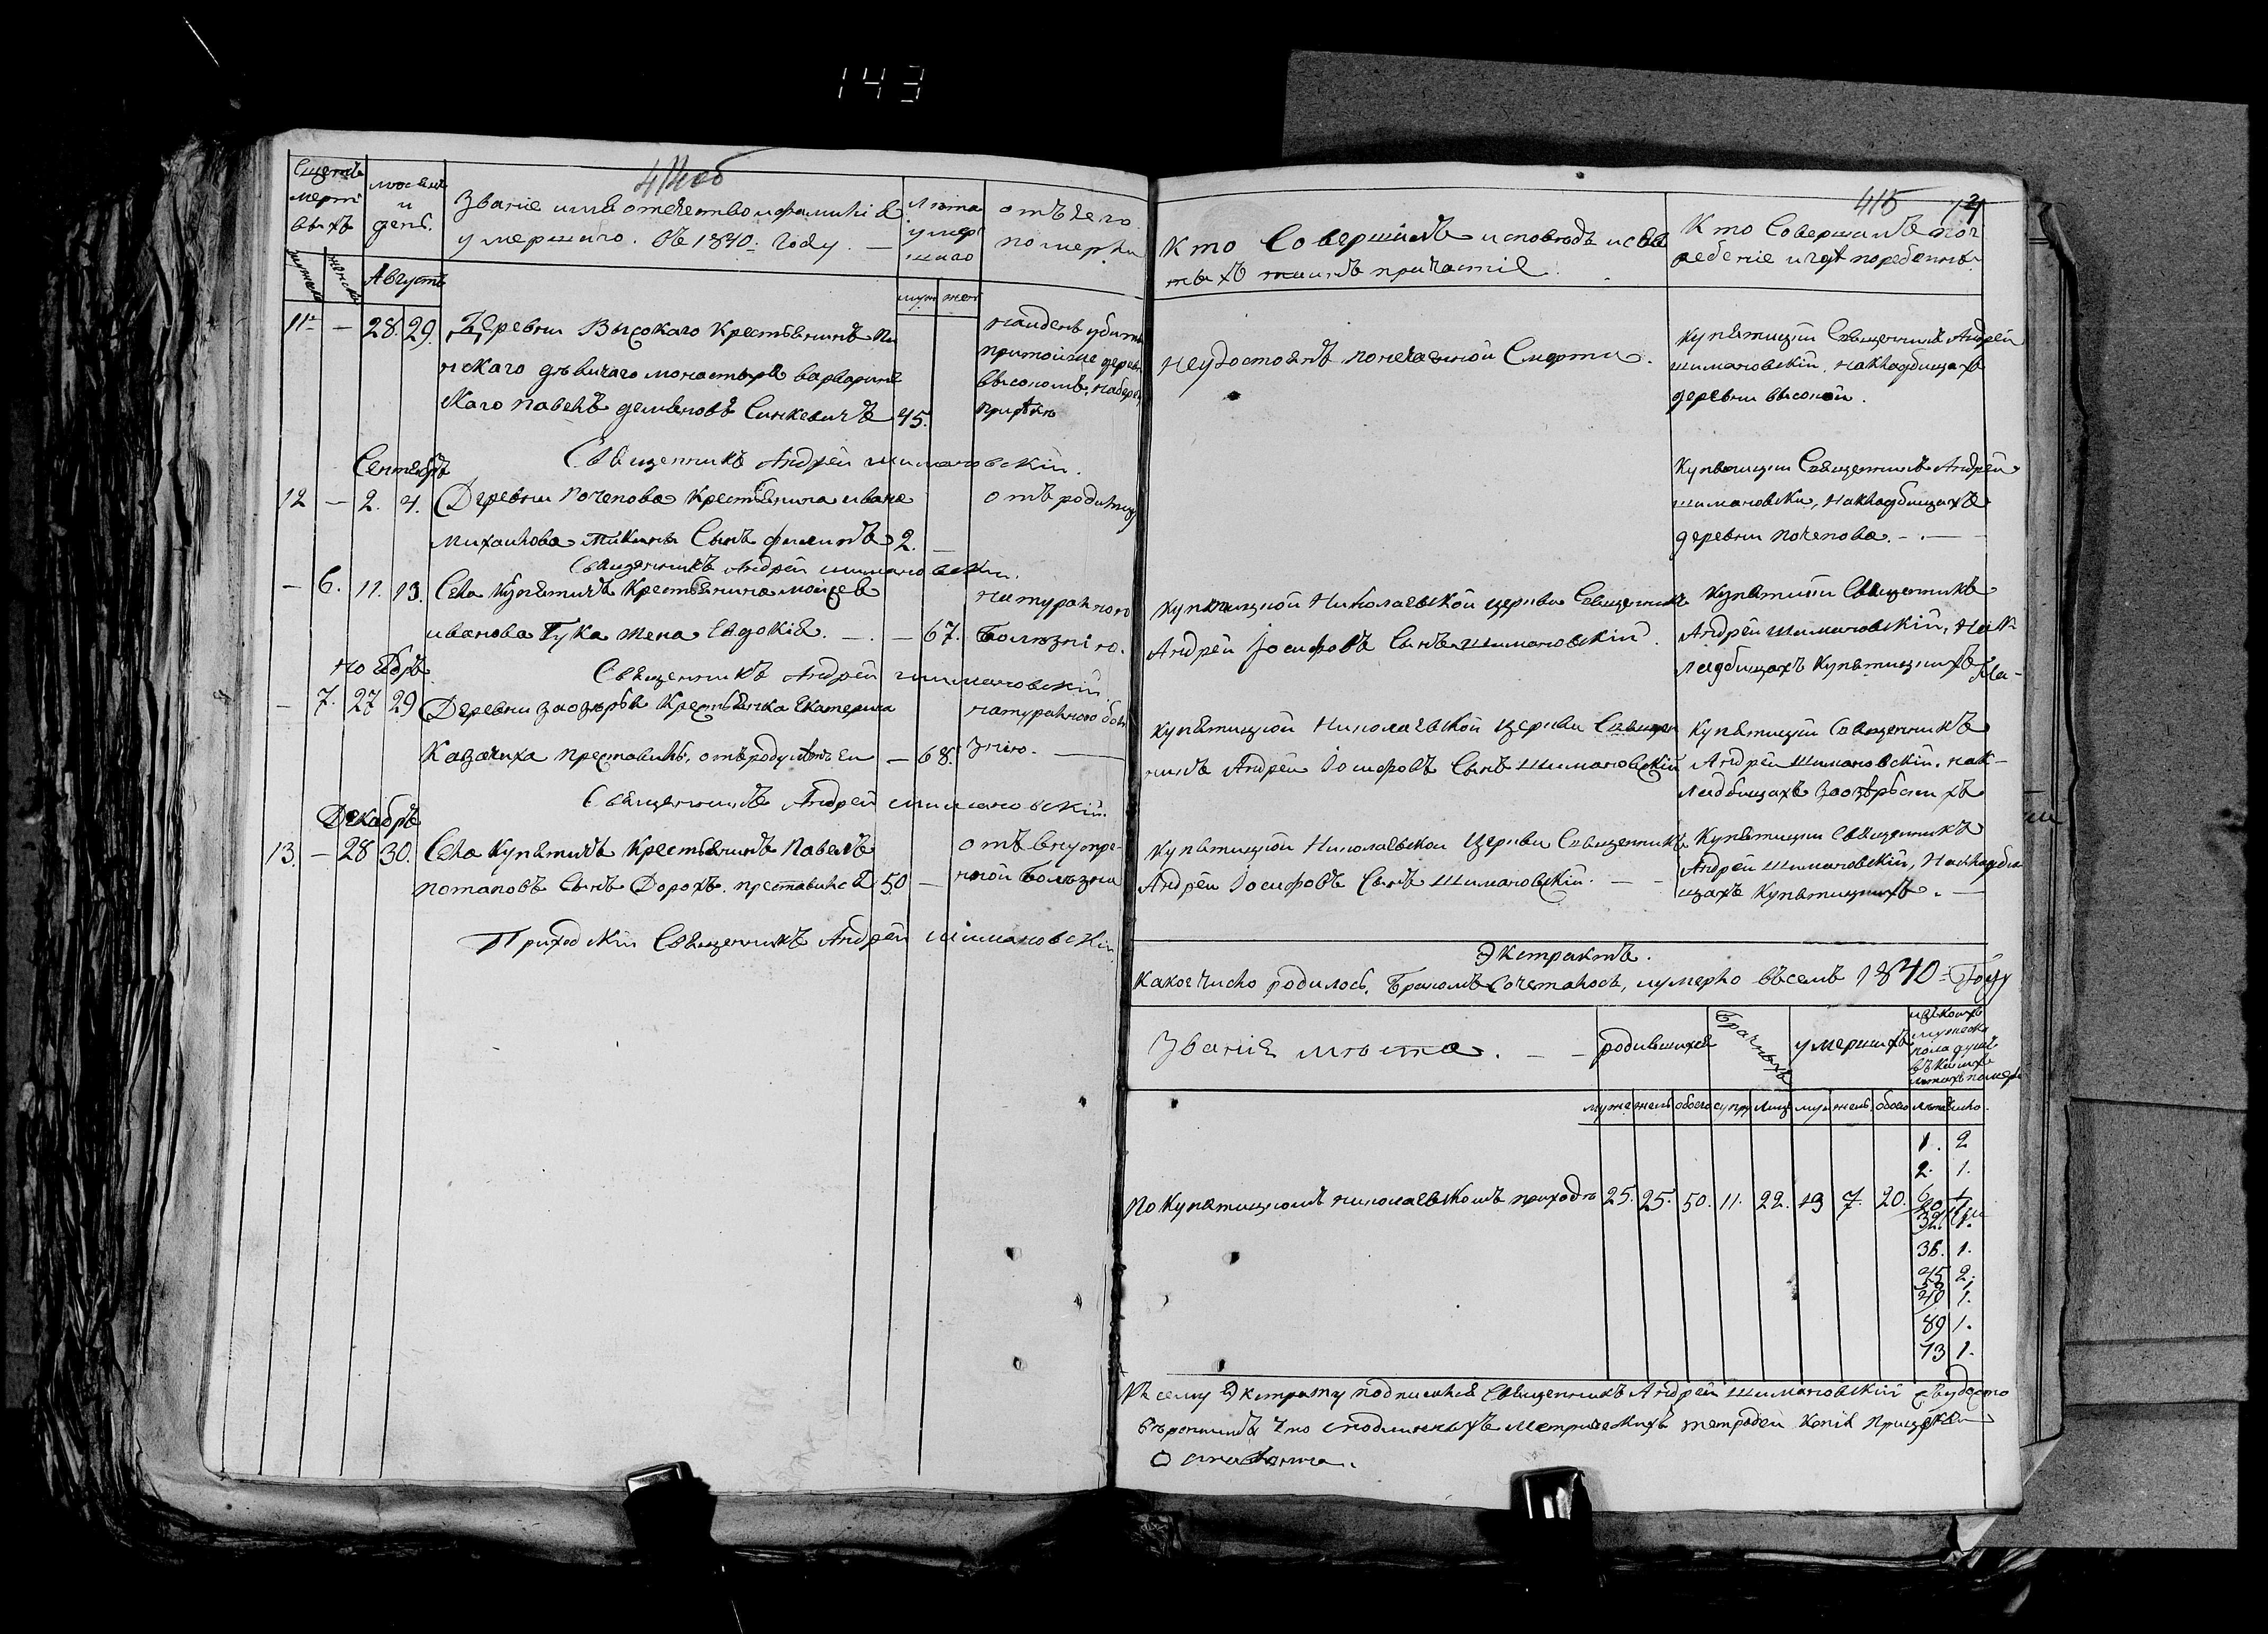 143
414об
Счетъ мертвыхъ
мѣсяцъ и день.
Званіе имя отечество и фамилія
умершаго. въ 1840. Году. —
Лѣта умершаго
отъ чего померли
муж жен
Августъ
11 — 28. 29. Деревни Высокаго Крестьянинъ Пи
нскаго дѣвичаго монастыря варварин
скаго Павелъ демяновъ Синкевичъ 45.
найденъ убитъ
при той же дерев
высокомъ, на берег
при рѣкѣ
Священникъ Андрей шимановскій.
Сентябрь
12 — 2. 4. Деревни Поченова Крестьянина ивана
михайлова Сынъ филипъ 2. —
отъ родимцу
Священникъ Андрей шимановскій.
— 6. 11. 13. Села Купятичъ Крестьянина моисея
иванова Гука жена Евдокія. — . — 67.
натуральною
болѣзнію.
Ноябрь
Священникъ Андрей шимановскій.
— 7. 27 29 Деревни заозерья Крестьянка Екатерина
Казачиха преставилъ, отъ роду лѣтъ ей — 68.
натуральною бол
ѣзнію. —
Священникъ Андрей шимановскій.
Декабрь
13. — 28 30. Села Купятичъ Крестьянинъ Павелъ
потаповъ Сынъ Дорохъ. преставился 50 —
отъ внутре-
нной болѣзни
Приходскій Священникъ Андрей шимановскій
415
Кто Совершалъ исповѣдь и свя
тыхъ таинъ причастіе.
Кто Совершалъ пог
ребеніе и гдѣ погребены.
Неудостоенъ по нечаянной Смерти.
Купятицкій Священникъ Андрей
шимановскій, на кладбищахъ
деревни высокой.
Купятицкій Священникъ Андрей
шимановскій, на кладбищахъ
деревни поченова. — . —
Купятицкой Николаевской церкви Священникъ
Андрей Іосифовъ Сынъ шимановскій.
Купятицкій Священникъ
Андрей шимановскій, на к
ладбищахъ Купятицкихъ
Купятицкой Николаевской церкви Священ
никъ Андрей Іосифовъ Сынъ шимановскій
Купятицкій Священникъ
Андрей шимановскій. на к—
ладбищахъ заозерскихъ
Купятицкой Николаевской Церкви Священникъ
Андрей Іосифовъ Сынъ шимановскій. — —
Купятицкій Священникъ
Андрей Шимановскій, На кладби
щахъ Купятицкихъ. —
Экстрактъ.
Какое число родилось, Бракомъ Сочеталось, и умерло въ семъ 1840 = Году
Званіе мѣста. — —
родившихся
Брачныхъ
умершихъ
изъ коихъ
мужеска
пола душъ
въ какихъ
лѣтахъ померли
муже жень обоего супр лицъ муж жень. обоего лѣта число.
1. 2
2. 1.
По Купятицкомъ николаевскомъ приходѣ 25. 25. 50. 11. 22. 13 7. 20.
38. 1.
45 2.
1.
89 1.
73 1.
Къ сему Экстракту подписался Священникъ Андрей шимановскій
что